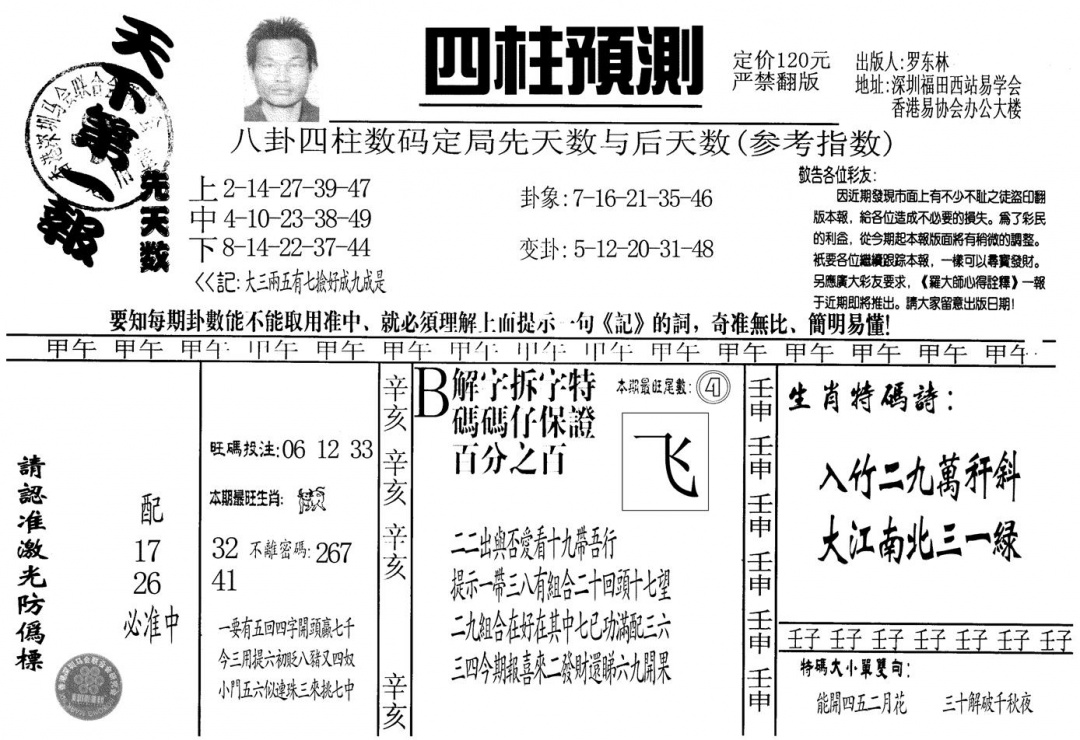 天下第一報
四柱預測
定价120元
严禁翻版
出版人:罗东林
地址:深圳福田西站易学会
香港易协会办公大楼
八卦四柱数码定局先天数与后天数(参考指数)
先天数
上2-14-27-39-47
中4-10-23-38-49
下8-14-22-37-44
<<記:大三兩五有七撿好成九成是
卦象:7-16-21-35-46
变卦:5-12-20-31-48
敬告各位彩友:
因近期發現市面上有不少不耻之徒盜印翻
版本報，給各位造成不必要的損失。爲了彩民
的利益，從今期起本報版面將有稍微的調整。
衹要各位繼續跟踪本報，一樣可以尋寶發財。
另應廣大彩友要求，《羅大師心得詮釋》一報
于近期即將推出。請大家留意出版日期!
要知每期卦數能不能取用准中、就必須理解上面提示一句《記》的詞，奇准無比、簡明易懂!
甲午 甲午 甲午 甲午 甲午 甲午 甲午 甲午 甲午 甲午 甲午 甲午 甲午 甲午 甲午
請認准激光防僞標
配
17
26
必准中
旺碼投注:06 12 33
本期最旺生肖:
32 不離密碼:267
41
一要有五回四字開頭贏七千
今三用提六初貶八豬又四奴
小門五六似連珠三來挑七中
辛亥
辛亥
辛亥
辛亥
B解字拆字特
碼碼仔保證
百分之百
本期最旺尾數:④
飞
二二出與否愛看十九帶吾行
提示一帶三八有組合二十回頭十七望
二九組合在好在其中七已功滿配三六
三四今期報喜來二發財還睇六九開果
壬申
壬申
壬申
壬申
壬申
壬申
生肖特碼詩:
入竹二九萬秆斜
大江南北三一緑
壬子 壬子 壬子 壬子 壬子 壬子 壬子
特碼大小單雙句:
能開四五二月花 三十解破千秋夜